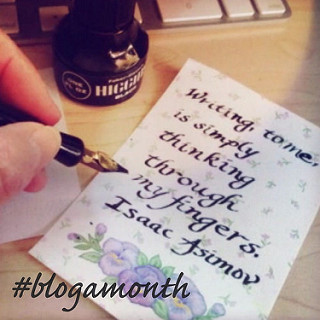 HIGGINS
Writing, to me,
is simply
thinking
through
my fingers.
Isaac Asimov
#blogamonth